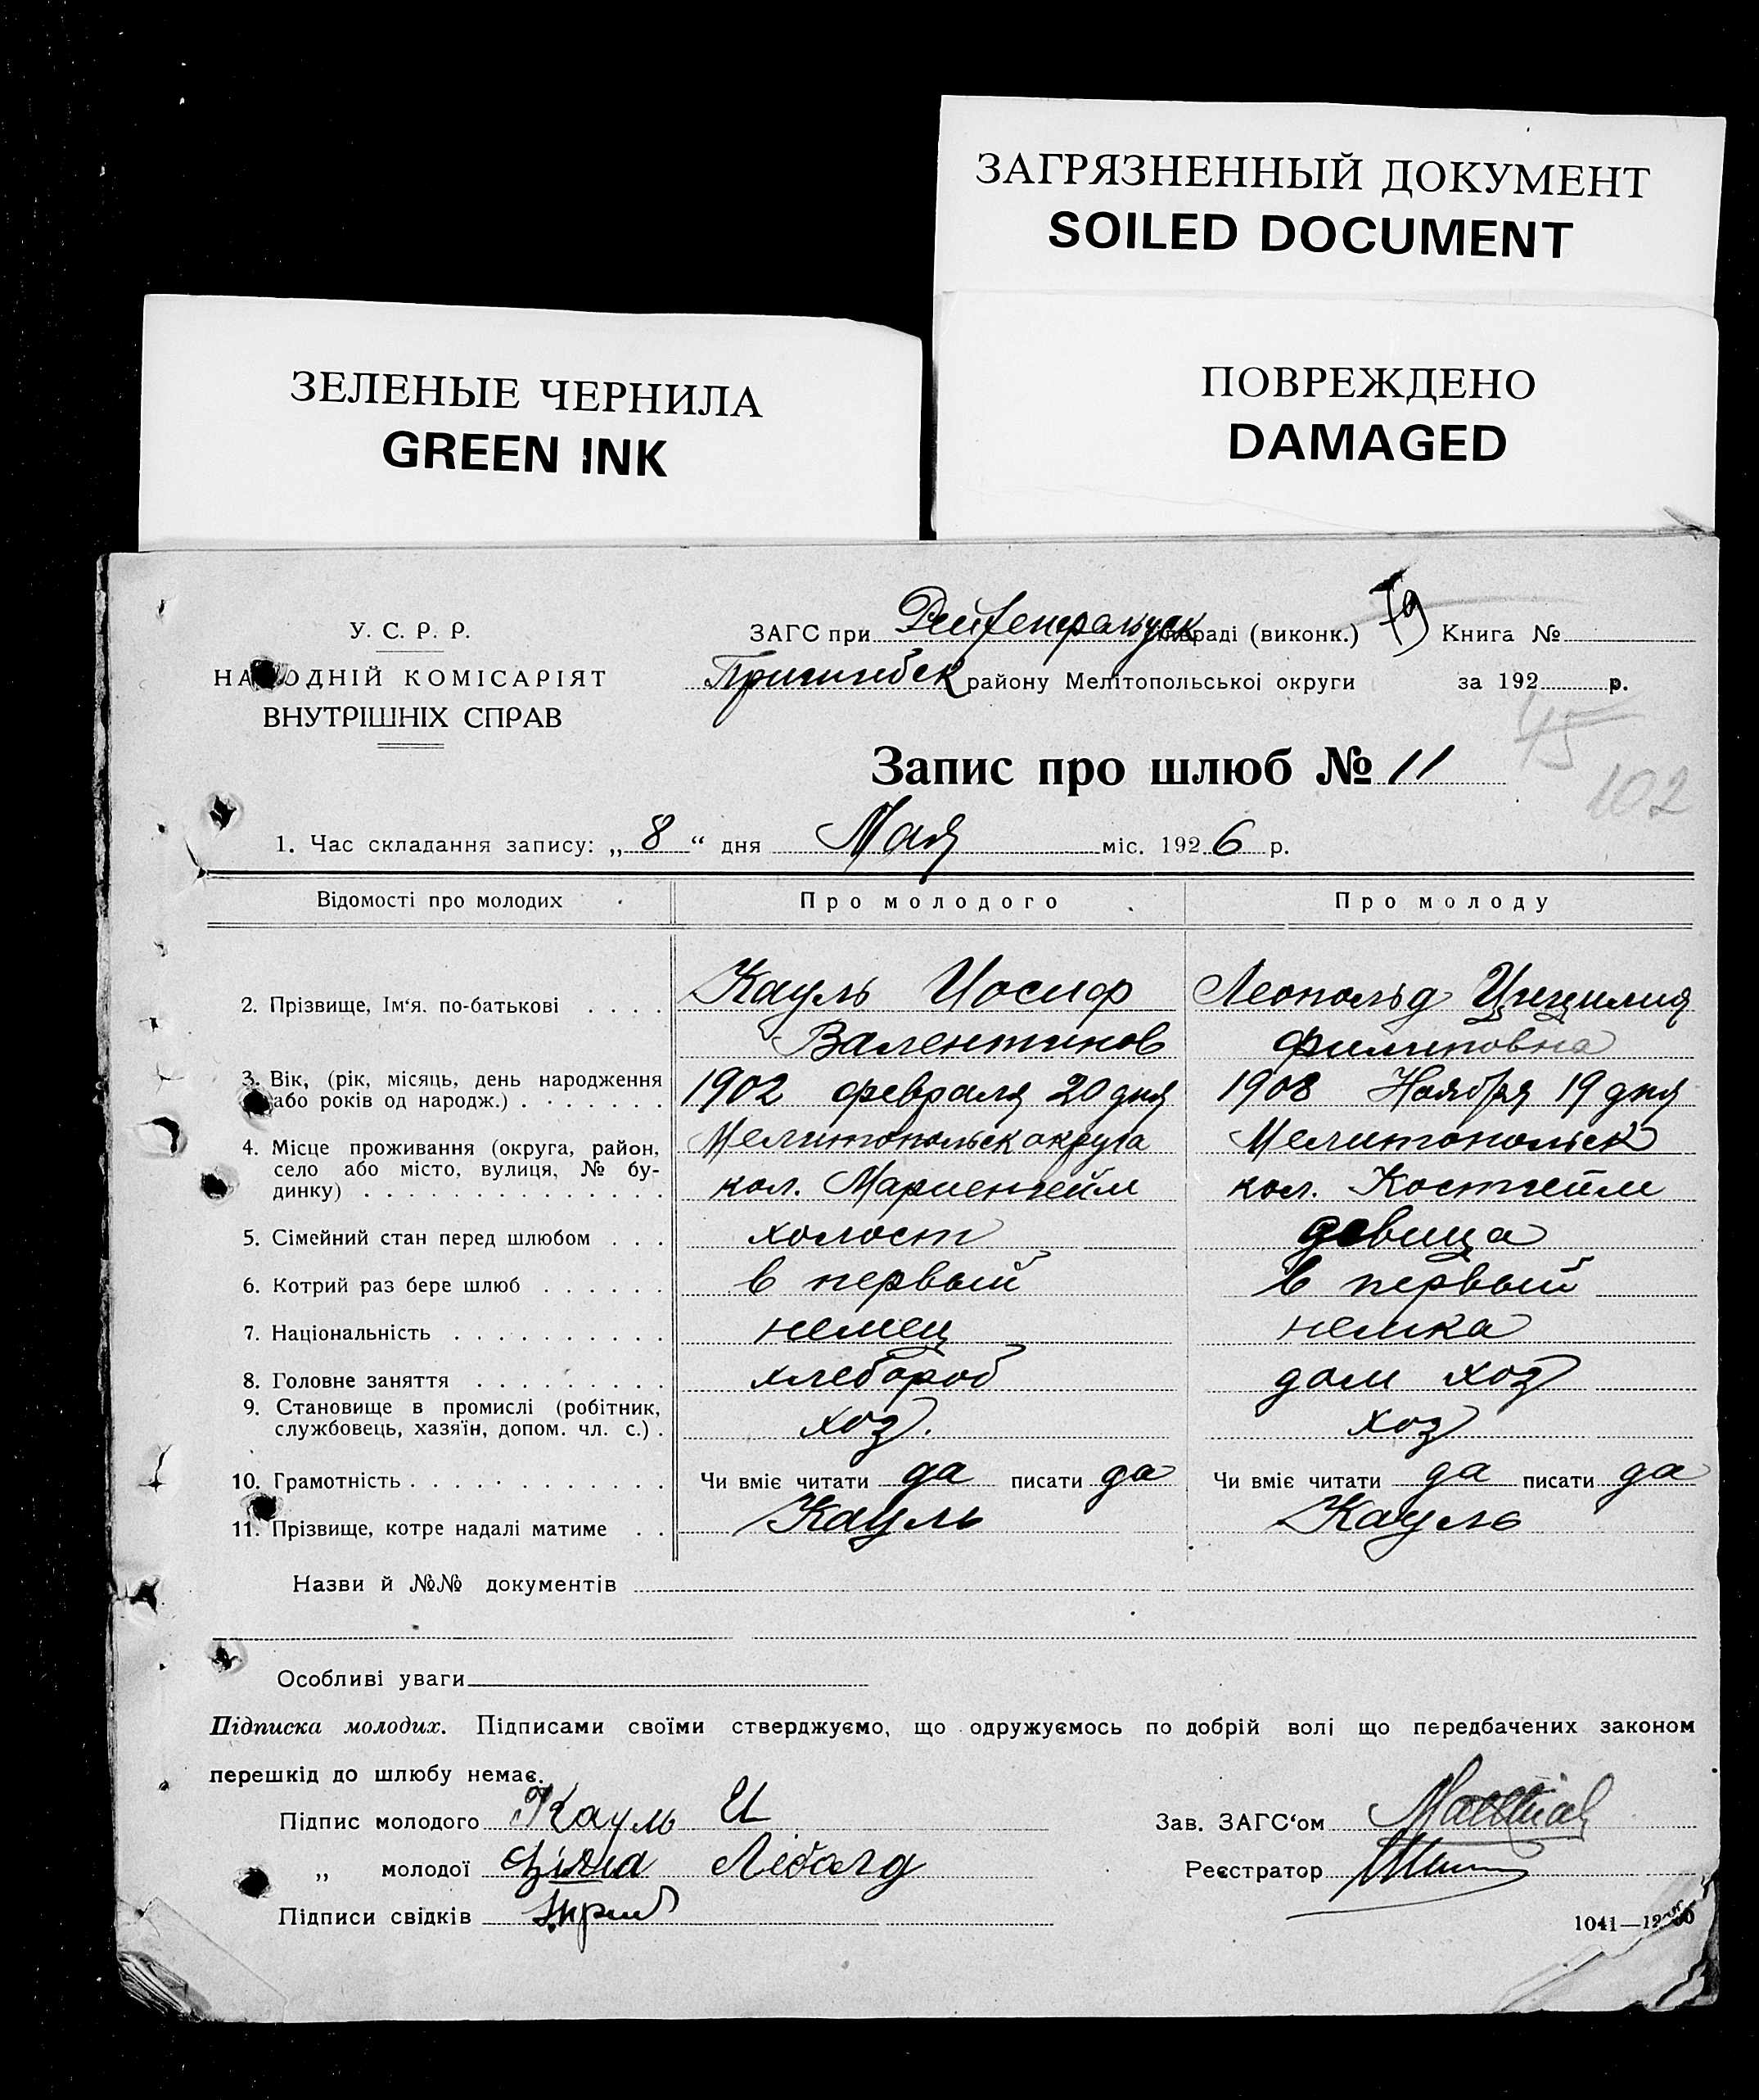 ЗАГРЯЗНЕННЫЙ ДОКУМЕНТ
SOILED DOCUMENT
ЗЕЛЕНЫЕ ЧЕРНИЛА
GREEN INK
ПОВРЕЖДЕНО
DAMAGED
У. С. Р. Р.
НАРОДНІЙ КОМІСАРІЯТ
ВНУТРІШНІХ СПРАВ
ЗАГС при раді (виконк.) 79 Книга №
Пришибск району Мелітопольської округи за 192 р.
45
Запис про шлюб № 11
102
1. Час складання запису: „ 8 “ дня Мая міс. 1926 р.
Відомості про молодих Про молодого Про молоду
2. Прізвище, Ім‘я. по-батькові Кауль Иосиф Леопольд Цицилия
Валентинов Филиповна
3. Вік, (рік, місяць, день народження або років од народж.) 1902 февраля 20 дня 1908 Ноября 19 дня
4. Місце проживання (округа, район, Мелитопольск округа Мелитопольск
село або місто, вулиця, № бу-
динку) кол. Мариенгейм кол. Костгейм
5. Сімейний стан перед шлюбом холост девица
6. Котрий раз бере шлюб в первый в первый
7. Національність немец немка
8. Головне заняття хлебороб дом хоз
9. Становище в промислі (робітник,
службовець, хазяїн, допом. чл. с.) хоз. хоз
10. Грамотність Чи вміє читати да писати да Чи вміє читати да писати да
11. Прізвище, котре надалі матиме Кауль Кауль
Назви й №№ документів
Особливі уваги
Підписка молодих. Підписами своїми стверджуємо, що одружуємось по добрій волі що передбачених законом
перешкід до шлюбу немає.
Підпис молодого Кауль И Зав. ЗАГС‘ом
„ молодої Реєстратор
Підписи свідків
1041—